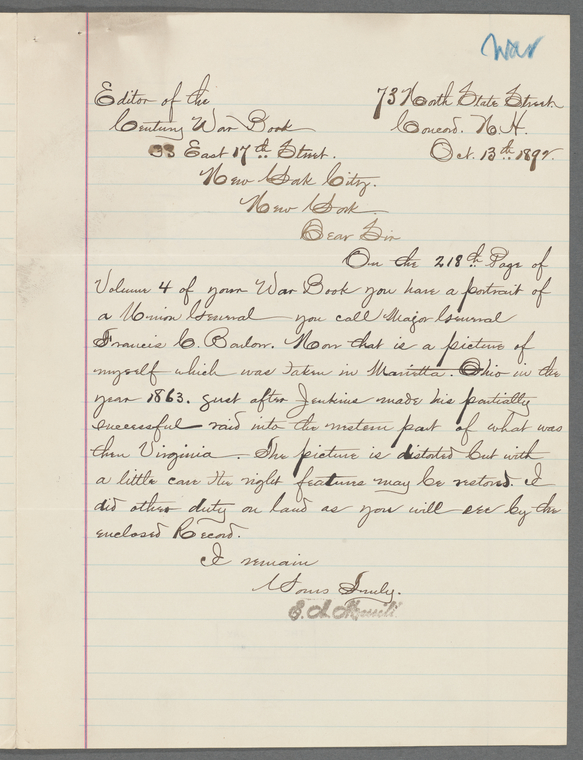 War
Editor of the
Century War Book
33 East 17th Street.
New York City.
New York
73 North State Street
Concord. N.H.
Oct. 13th 1892.
Dear Sir
On the 218th Page of
Volume 4 of your War Book you have a portrait of
a Union General you call Major General
Francis C. Barlow. Now that is a picture of
myself which was taken in Marietta. Ohio in the
year 1863. just after Jenkins made his partially
successful raid into the western part of what was
then Virginia. The picture is distorted but with
a little care the right features may be restored. I
did other duty on land as you will see by the
enclosed Record.
I remain
Yours Truly.